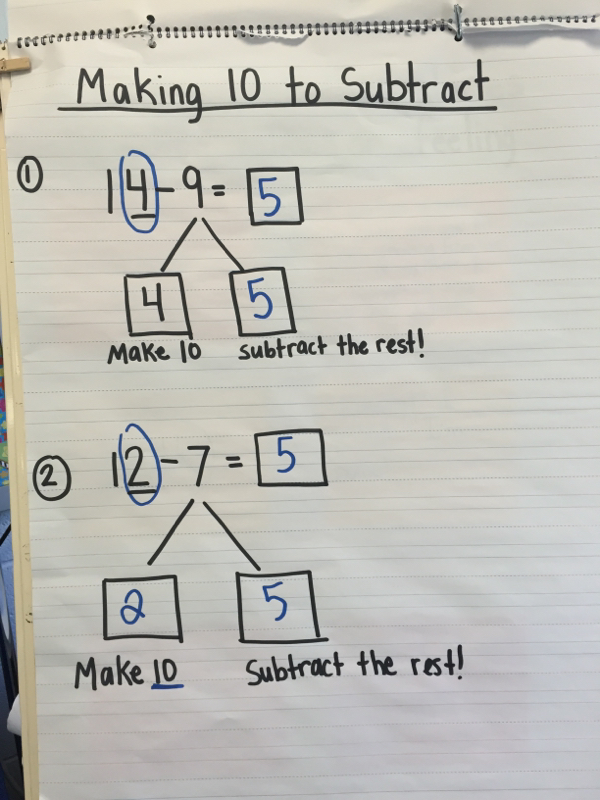 Making 10 to Subtract
① 14 - 9 = 5
4 5
Make 10 subtract the rest!
② 12 - 7 = 5
2 5
Make 10 Subtract the rest!